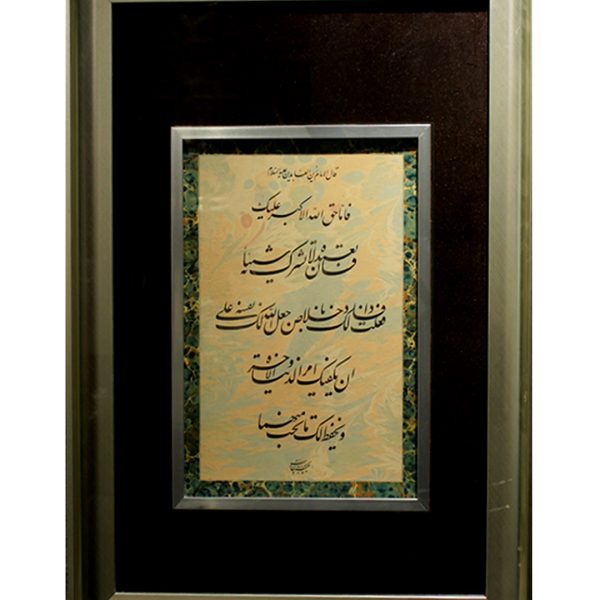 قال الامام زین العابدین علیه السلام
فاما حق الله الاکبر علیک
فان تعبده لا تشرک به شیئا
فاذا فعلت ذلک باخلاص جعل لک علی نفسه
ان یکفیک امر الدنیا و الاخرة
و یحفظ لک ما تحب منهما